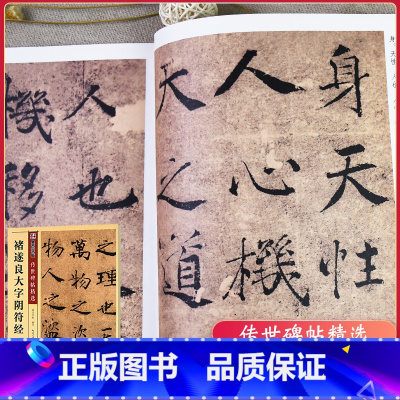 身天性
人心機
天之道
人也
機移
传世碑帖精选
褚遂良大字阴符经
之理也
萬物之
物人之盜
传世碑帖精选